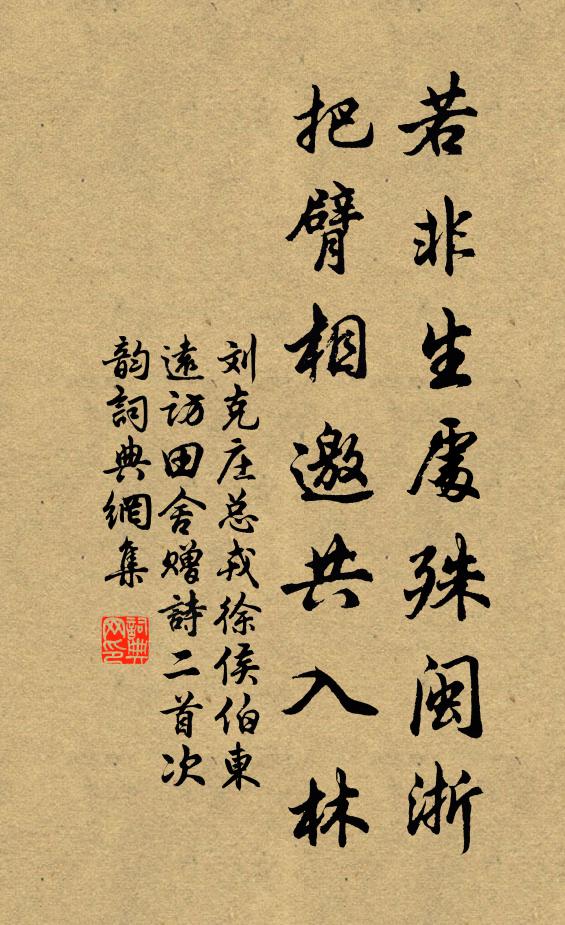 若非生處殊閩浙
把臂相邀共入林
刘克庄总戎徐侯伯東
遠访田舍赠詩二首次
韵詞典網集
詞典网印